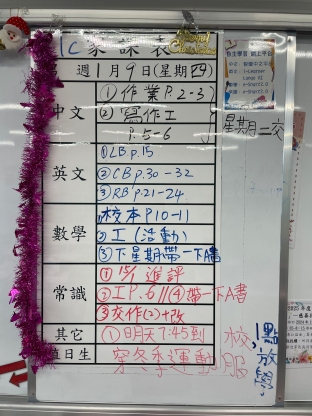 1C 家課表
週1月9日(星期四)
中文
①作業P.2-3
②寫作工
P.5-6
星期二交
英文
①LB p.15
②CB p.30-32
③RB p.21-24
數學
校本P10-11
②工(活動)
③下星期帶一下A書
常識
①15/1 進評
②工P.6//④帶一下A書
③交作(2)+改
其它
①明天7:45到校,1點放學
值日生
穿冬季運動服
自主學習